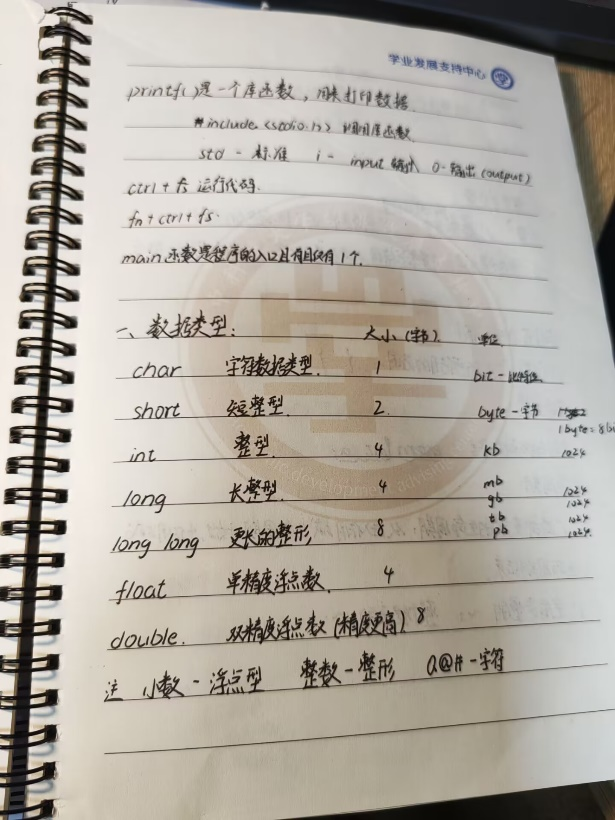 学业发展支持中心
printf()是一个库函数，用来打印数据.
#include <stdio.h> 调用库函数
std - 标准 i - input 输入 o-输出 (output)
ctrl + f5 运行代码.
fn + ctrl + f5.
main函数是程序的入口且有且仅有1个.
一、数据类型: 大小(字节). 单位
char 字符数据类型. 1 bit - 比特位
short 短整型. 2 byte - 字节
1byte = 8bi
int 整型 4 kb 1024
long 长整型. 4 mb 1024
gb 1024
long long 更长的整形 8 tb 1024
pb 1024
float 单精度浮点数. 4
double. 双精度浮点数 (精度更高) 8
注 小数 - 浮点型 整数 - 整形 a@# - 字符